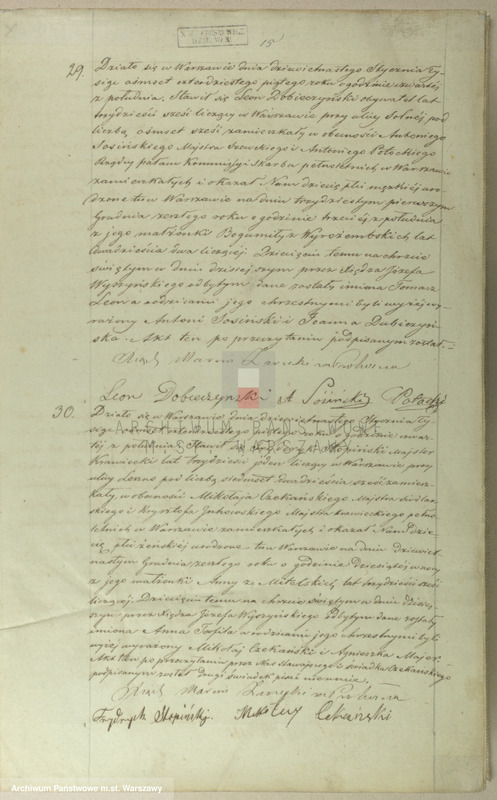 15
29. Działo się w Warszawie dnia dziewiętnastego Stycznia ty-
siąc ośmset czterdziestego piątego roku o godzinie czwartej
z południa. Stawił się Leon Dobieczyński obywatel lat
trzydzieści sześć liczący w Warszawie przy ulicy Solnej pod
liczbą ośmset sześć zamieszkały w obecności Antoniego
Sosińskiego Majstra Szewckiego i Antoniego Potockiego
Kommissyi Skarbu pełnoletnich w Warszawie
zamieszkałych i okazał Nam dziecię płci męzkiej uro-
dzone tu w Warszawie na dniu trzydziestym pierwszym
Grudnia zeszłego roku o godzinie trzeciej z południa
z jego małżonki Bogumiły z Wyrozembskich lat
dwadzieścia dwa liczącej. Dziecięciu temu na chrzcie
świętym w dniu dzisiejszym przez Xiędza Józefa
Wyszyńskiego odbytym dane zostały imiona Tomasz
Leon a rodzicami jego chrzestnymi byli wyżej wy-
rażony Antoni Sosiński i Joanna Dobieczyń-
ska. Akt ten po przeczytaniu podpisanym został.
Xiądz Marcin
Leon Dobieczynski A Sosiński Potocki
30. Działo się w Warszawie dnia dziewiętnastego Stycznia ty-
siąc ośmset czterdziestego piątego roku o godzinie czwar-
tej z południa. Stawił się Fryderyk Stopiński Majster
Krawiecki lat trzydzieści jeden liczący w Warszawie przy
ulicy Leszno pod liczbą siedmset dwadzieścia sześć zamiesz-
kały, w obecności Mikołaja Czekańskiego Majstra Siodlar-
skiego i Krysztofa Majstra krawieckiego pełno-
letnich w Warszawie zamieszkałych i okazał Nam dzie-
cię płci żeńskiej urodzone tu w Warszawie na dniu dziewięt-
nastym Grudnia zeszłego roku o godzinie dziesiątej w nocy
z jego małżonki Anny z lat trzydzieści sześć
liczącej. Dziecięciu temu na chrzcie świętym w dniu dzisiej-
szym przez Xiędza Józefa Wyszyńskiego odbytym dane zostały
imiona Anna Teofila a rodzicami jego chrzestnymi byli
wyżej wyrażony Mikołaj Czekański i Agnieszka Majer.
Akt ten po przeczytaniu przez Nas stawającego i świadka Czekańskiego
podpisanym został drugi świadek pisać nieumie.
Xiądz Marcin
Frydrych Stopiński. Mikołay Cekański
ARCHIWUM PAŃSTWOWE
W WARSZAWIE
Archiwum Państwowe m.st. Warszawy